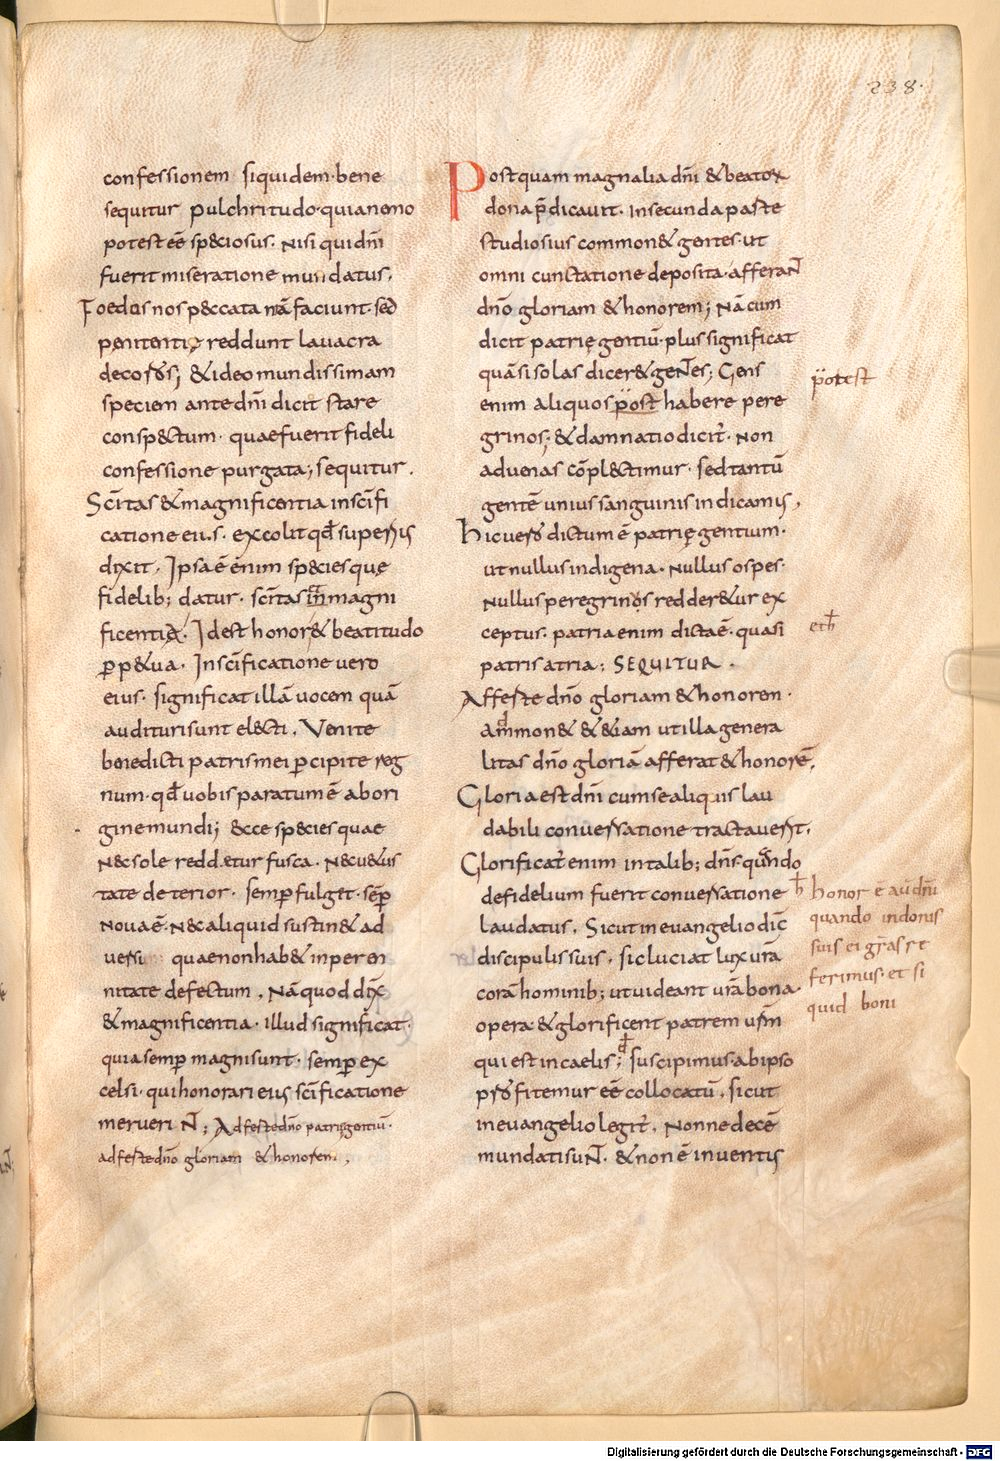 238.
confessionem siquidem·bene
sequitur pulchritudo·quia nemo
potest eē speciosus. Nisi qui dn̄i
fuerit miseratione mundatus.
Foedos nos peccata nā faciunt·sed
penitentię reddunt lauacra
decoros; & ideo mundissimam
speciem ante dn̄i dicit stare
conspectum· quae fuerit fideli
confessione purgata; sequitur.
Sc̄itas & magnificentia in sc̄ifi
catione eius. excolit qd̄ superius
dixit. Ipsa ē enim species quę
fidelib; datur. sc̄itas in magni
ficentia. Id est honor & beatitudo
ꝑp&ua. In sc̄ificatione uero
eius· significat illā uocem quā
audituri sunt electi. Venite
benedicti patris mei ꝑcipite reg
num· qd̄ uobis paratum ē ab ori
gine mundi; ecce species quae
nec sole redd&ur fusca. Nec u&us
tate deterior. semꝑ fulget. sēꝑ
noua ē. Nec aliquid sustin& ad
uersum quae non hab& in peren
nitate defectum. Nā quod dix̄
& magnificentia. Illud significat·
quia semꝑ magni sunt. semꝑ ex
celsi· qui honorari eius sc̄ificatione
meruerinт; Adferte dn̄o patrię gentiū·
adferte dn̄o gloriam & honorem.
Postquam magnalia dn̄i & beatoꝝ
dona p̄dicauit. In secunda parte
studiosius common& gentes· ut
omni cunctatione deposita· afferant
dn̄o gloriam & honorem; Nā cum
dicit patrię gentiū· plus significat
quā si solas dicer& gentes; Gens
enim aliquos post habere pere
grinos; & damnatio dicit̄. Non
aduenas cōplectimur. sed tantū
gentē unius sanguinis indicamus.
Hic uero dictum ē patrię gentium·
ut nullus indigena. Nullus ospes·
Nullus peregrinos redder&ur ex
ceptus. patria enim dicta ē· quasi
patris atria; SEQUITUR.
Afferte dn̄o gloriam & honorem·
ammon& & &iam ut illa genera
litas dn̄o gloriā afferat & honorē.
Gloria est dn̄i cum se aliquis lau
dabili conuersatione tractauerit.
Glorificat̄ enim in talib; dn̄s· quando
de fidelium fuerit conuersatione
laudatus. Sicut in euangelio dic̄
discipulis suis. sic luciat lux ur̄a
corā hominib; ut uideant ur̄a bona
opera & glorificent patrem ur̄m
qui est in caelis; suscipimus· ab ipso
profitemur eē collocatū. sicut
in euangelio legit̄. Nonne decē
mundati sunt. & non ē inuentus
potest
honor ē au dn̄i
quando in donis
suis ei gr̄as re
ferimus· et si
quid boni
Digitalisierung gefördert durch die Deutsche Forschungsgemeinschaft - DFG